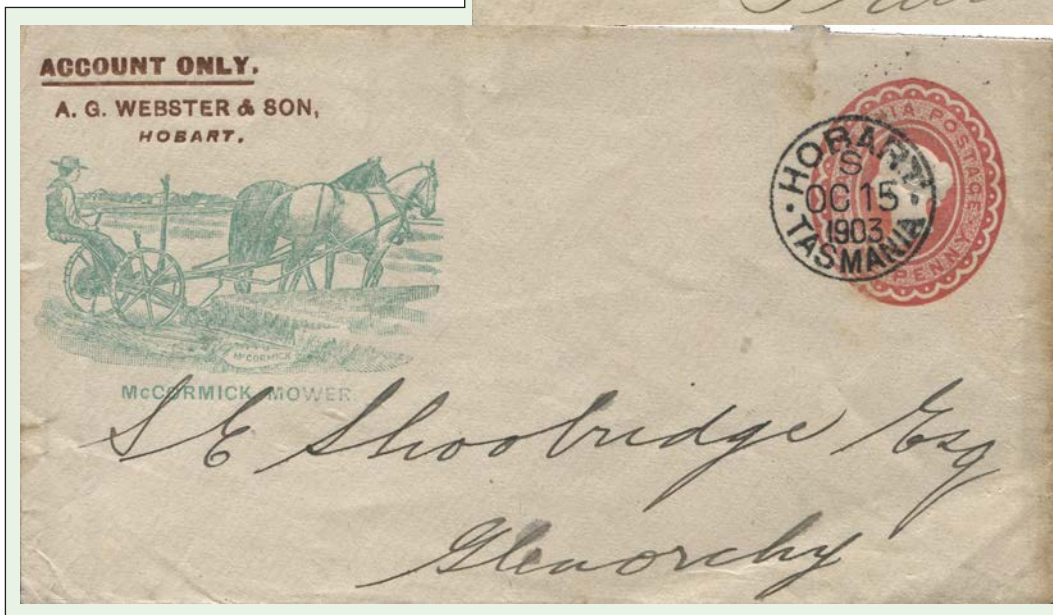 ACCOUNT ONLY.
A. G. WEBSTER & SON,
HOBART.
McCORMICK
McCORMICK MOWER.
HOBART
S
OC 15
1903
TASMANIA
POSTAGE
PENNY
S E Shoobridge Esq
Glenorchy